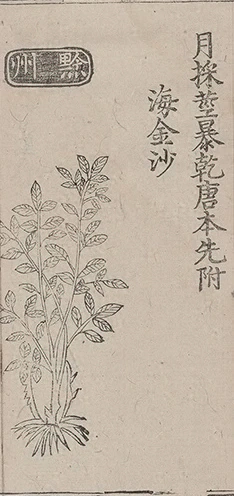 月採莖暴乾唐本先附
海金沙
黔州